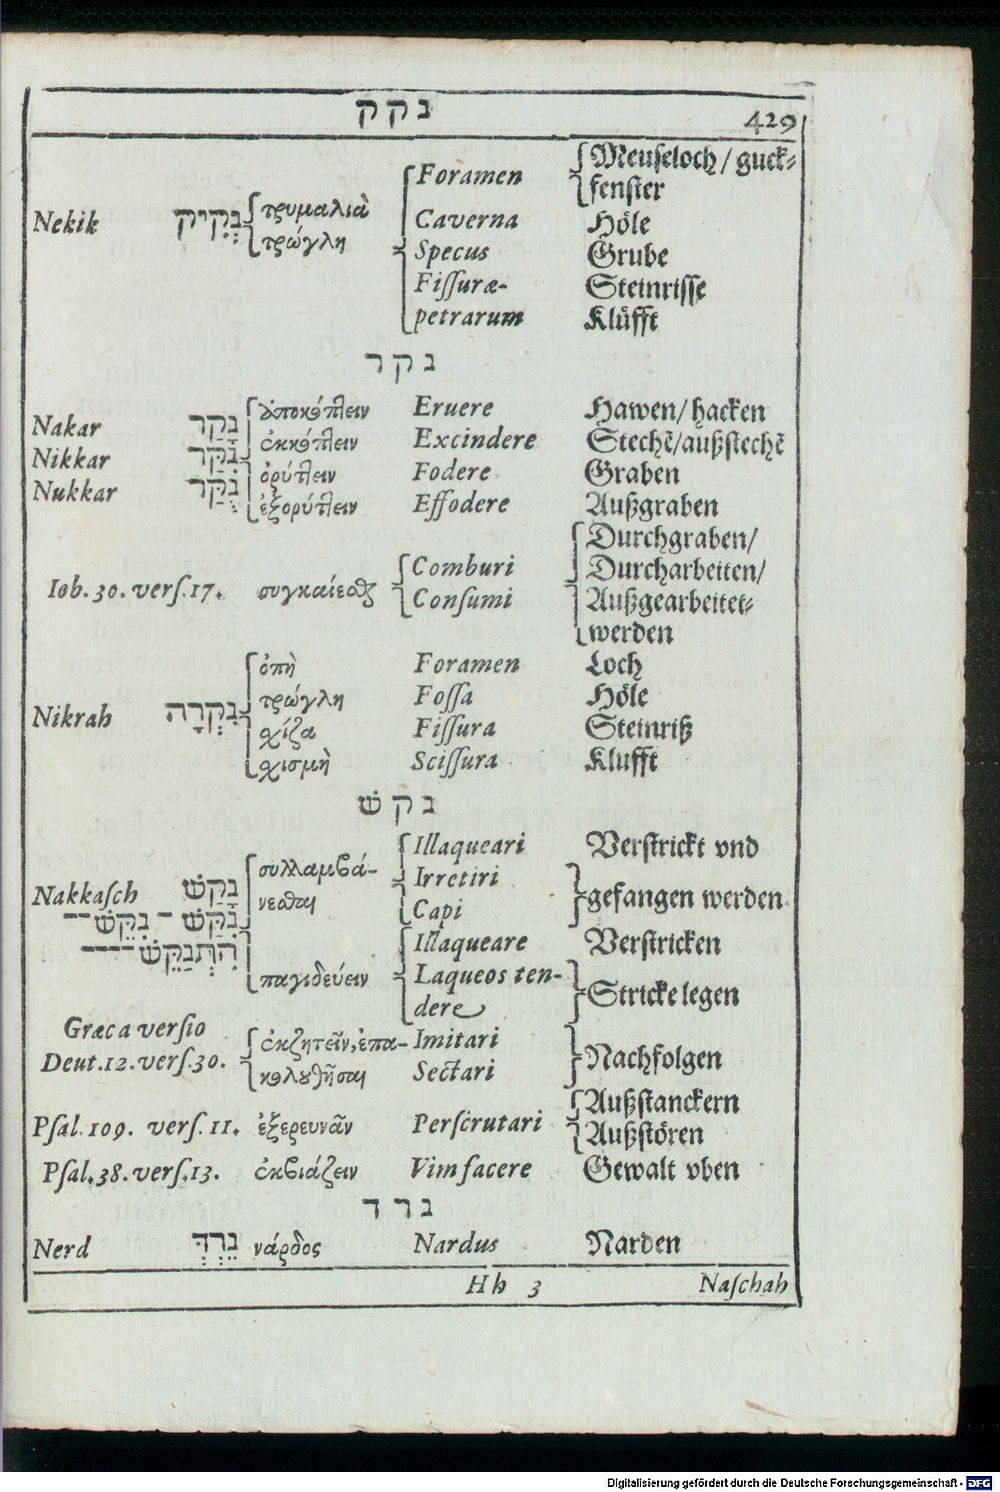 נקק 429
Foramen Meuſeloch/guck⸗
fenſter
Nekik נְקִיק τρυμαλιὰ Caverna Höle
τρώγλη Specus Grube
Fiſſuræ- Steinriſſe
petrarum Klüfft
נקר
Nakar נָקַר ἀποκόπτειν Eruere Hawen/hacken
Nikkar נִקַּר ἐκκόπτειν Excindere Stechẽ/außſtechẽ
Nukkar נֻקַּר ὀρύττειν Fodere Graben
ἐξορύττειν Effodere Außgraben
Durchgraben/
Iob. 30. verſ. 17. συγκαίεσθαι Comburi Durcharbeiten/
Conſumi Außgearbeitet⸗
werden
ὀπὴ Foramen Loch
Nikrah נִקְרָה τρώγλη Foſſa Höle
σχίζα Fiſſura Steinriß
σχισμὴ Sciſſura Klufft
נקש
Illaqueari Verſtrickt vnd
Nakkaſch נָקַשׁ συλλαμβά- Irretiri
νεσθαι Capi gefangen werden
נִקַּשׁ - נִקֵּשׁ--
הִתְנַקֵּשׁ---- Illaqueare Verſtricken
παγιδεύειν Laqueos ten-
dere Stricke legen
Græca verſio
Deut. 12. verſ. 30. ἐκζητεῖν, ἐπα- Imitari Nachfolgen
κολουθῆσαι Sectari
Pſal. 109. verſ. 11. ἐξερευνᾶν Perſcrutari Außſtanckern
Außſtören
Pſal. 38. verſ. 13. ἐκβιάζειν Vim facere Gewalt vben
נרד
Nerd נֵרְדְּ νάρδος Nardus Narden
Hh 3 Naſchah
Digitalisierung gefördert durch die Deutsche Forschungsgemeinschaft - DFG